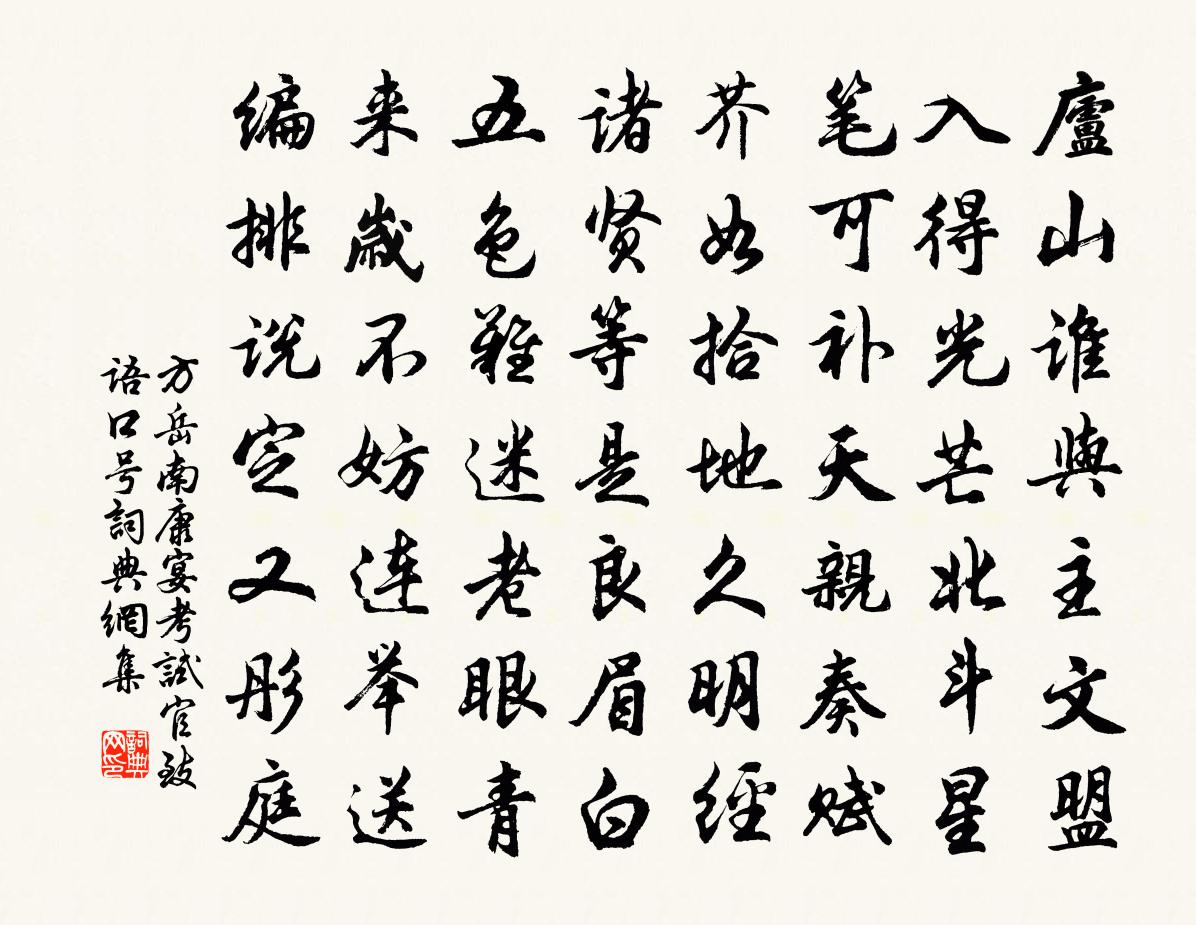 廬山谁與主文盟
入得光芒北斗星
笔可补天親奏赋
芥如拾地久明經
诸贤等是良眉白
五色難迷老眼青
来歲不妨连举送
编排说定又彤庭
方岳南康宴考試官致
语口号詞典網集
詞典网印